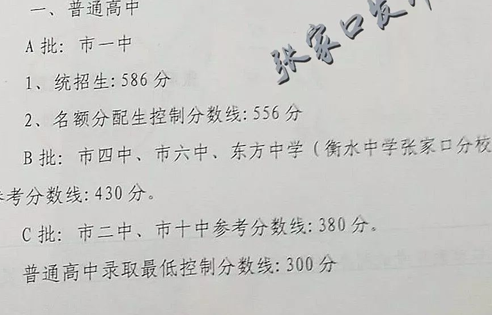 一、普通高中
张家口发布
A 批：市一中
1、统招生：586 分
2、名额分配生控制分数线：556 分
B 批：市四中、市六中、东方中学（衡水中学张家口分校
参考分数线：430 分。
C 批：市二中、市十中参考分数线：380 分。
普通高中录取最低控制分数线：300 分